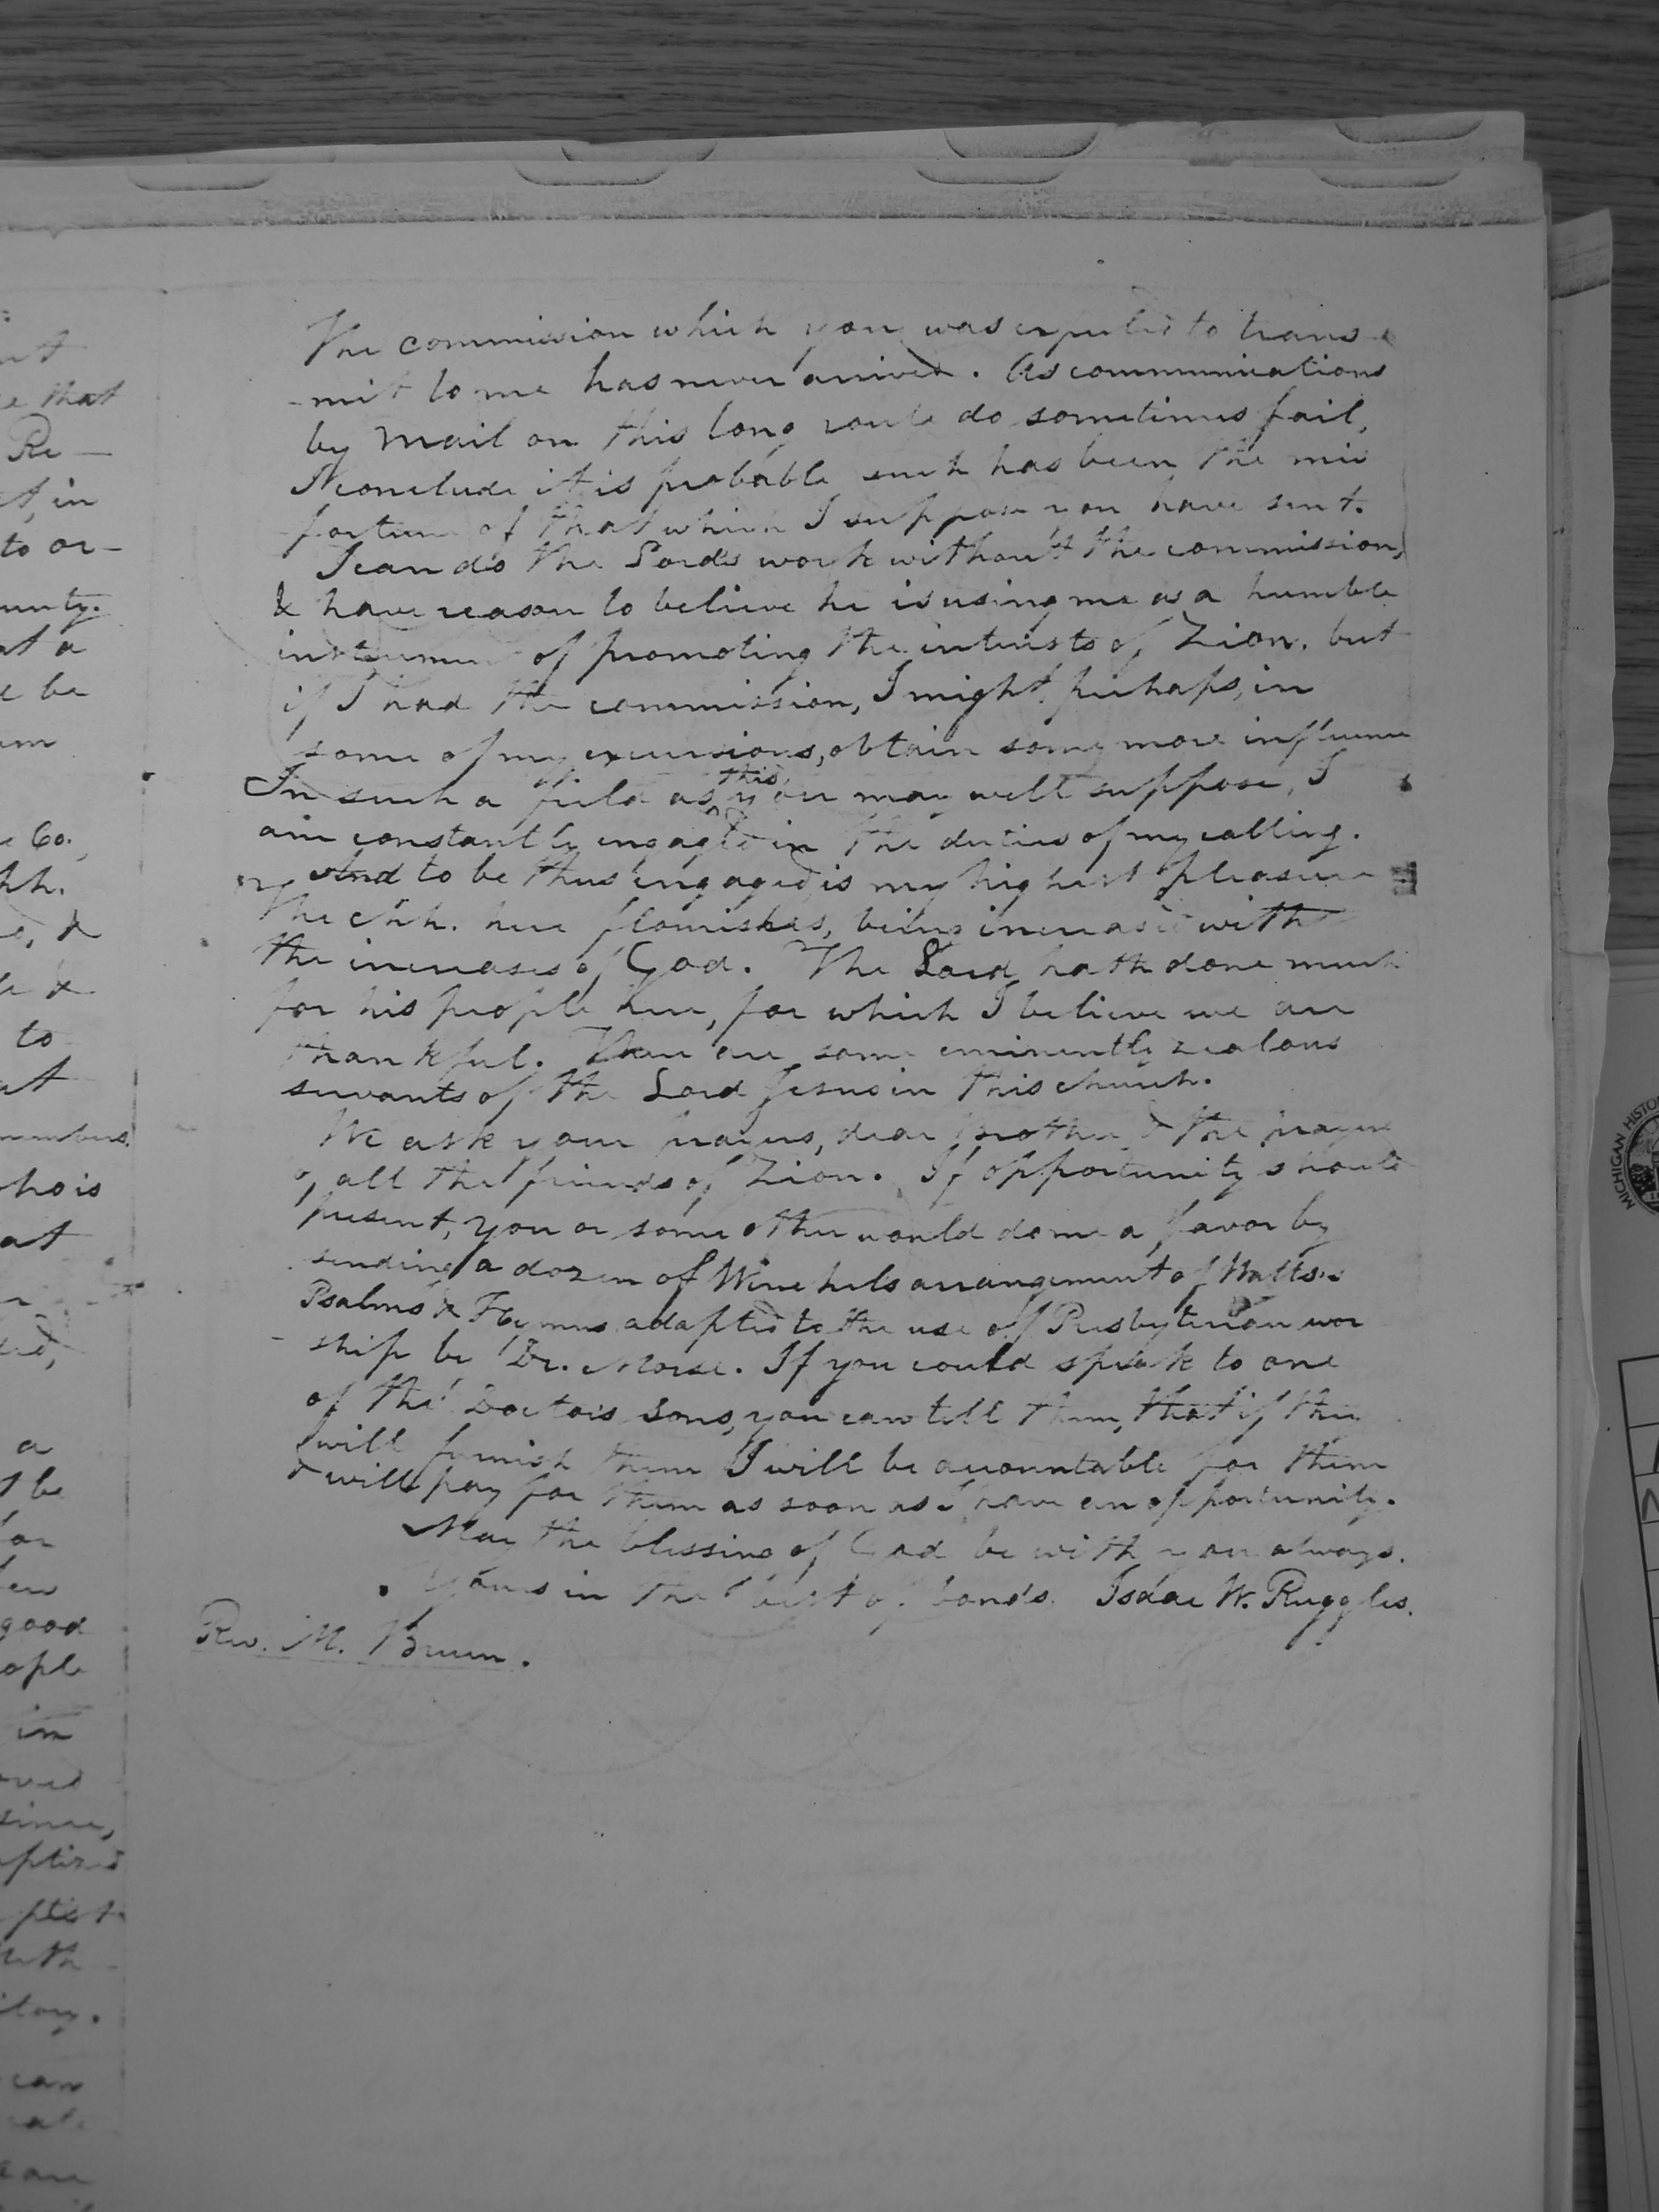 The commission which you was expected to trans-
-mit to me has never arrived. As communications
by mail on this long route do sometimes fail,
I conclude it is probable such has been the mis
fortune of that which I suppose you have sent.
I can do the Lord's work without the commission,
& have reason to believe he is using me as a humble
instrument of promoting the interests of Zion. but
if I had the commission, I might, perhaps, in
some of my excursions, obtain some more influence
In such a field as this, you may well suppose, I
am constantly engaged in the duties of my calling.
And to be thus engaged is my highest pleasure
The chh. here flourishes, being increased with
the increases of God. The Lord hath done much
for his people here, for which I believe we are
thankful. There are some eminently zealous
servants of the Lord Jesus in this church.
We ask your prayers, dear brother & the prayers
of all the friends of Zion. If opportunity should
present, you or some other would do me a favor by
sending a dozen of Winchels arrangement of Watts's
Psalms & Hymns adapted to the use of Presbyterian wor
-ship by Dr. Morse. If you could speak to one
of the Doctors sons, you can tell them, that if they
will furnish them I will be accountable for them
& will pay for them as soon as I have an opportunity.
May the blessing of God be with you always.
Yours in the best of bonds. Isaac W. Ruggles.
Rev. M. Bruen.
that
Re-
in
to or-
unty.
at a
be
Co.
chh.
&
to
at
members.
who is
at
a
be
good
people
in
since,
can
MICHIGAN HISTO